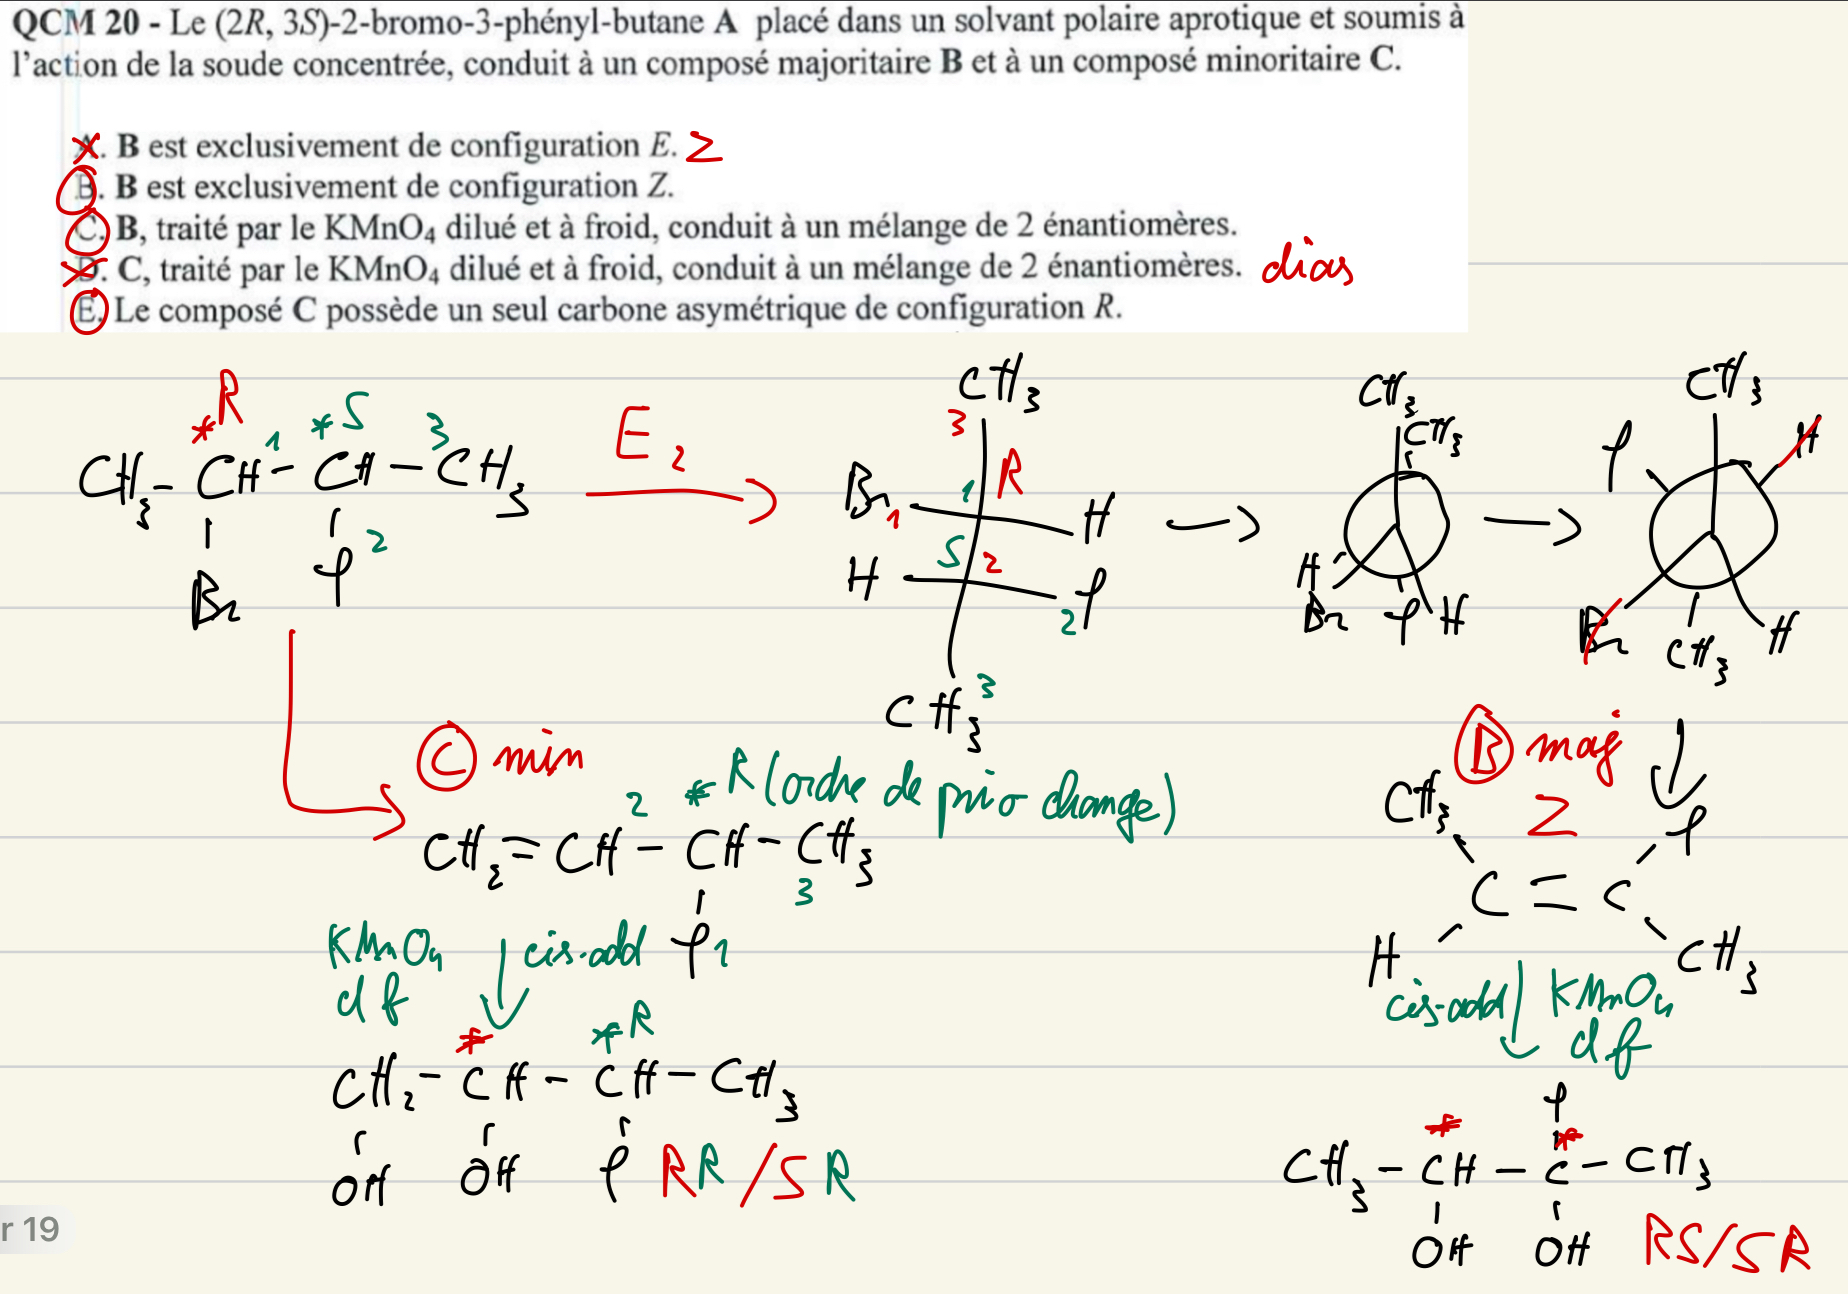 QCM 20 - Le (2R, 3S)-2-bromo-3-phényl-butane A placé dans un solvant polaire aprotique et soumis à
l'action de la soude concentrée, conduit à un composé majoritaire B et à un composé minoritaire C.
A. B est exclusivement de configuration E. Z
B. B est exclusivement de configuration Z.
C. B, traité par le KMnO4 dilué et à froid, conduit à un mélange de 2 énantiomères.
D. C, traité par le KMnO4 dilué et à froid, conduit à un mélange de 2 énantiomères. dias
E. Le composé C possède un seul carbone asymétrique de configuration R.
*R 1 *S 3
CH3 - CH - CH - CH3
Br φ 2
E2
CH3
3 R
Br 1 1 H
H S 2 φ 2
CH3 3
CH3 CH3
H Br φ H
CH3
φ H
Br CH3 H
C min
2 *R (ordre de prio change)
CH2 = CH - CH - CH3
3
φ 1
B maj
Z
CH3 φ
C = C
H CH3
KMnO4 cis-add
d f
* *R
CH2 - CH - CH - CH3
OH OH φ RR/SR
cis-add KMnO4
d f
φ
* *
CH3 - CH - C - CH3
OH OH RS/SR
r 19